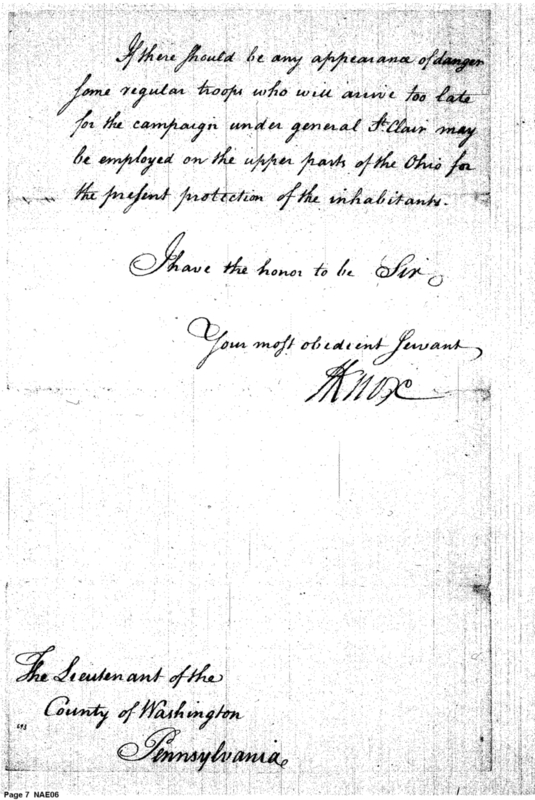 If there should be any appearance of danger
some regular troops who will arive too late
for the campaign under general St Clair may
be employed on the upper parts of the Ohio for
the present protection of the inhabitants.
I have the honor to be Sir
Your most obedient servant
HKnox
The Lieutenant of the
County of Washington
Pennsylvania
Page 7 NAE06